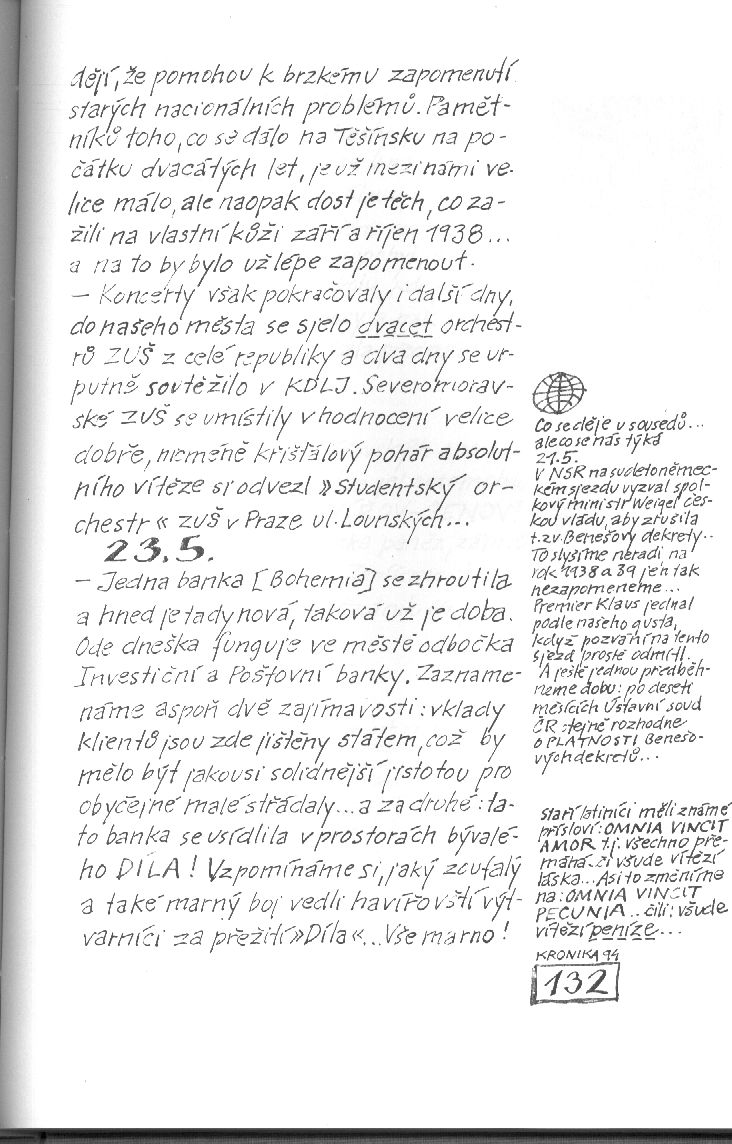 dějí, že pomohou k brzkému zapomenutí
starých nacionálních problémů. Pamět-
níků toho, co se dálo na Těšínsku na po-
čátku dvacátých let, je už mezi námi ve-
lice málo, ale naopak dost je těch, co za-
žili na vlastní kůži září a říjen 1938...
a na to by bylo už lépe zapomenout.
– Koncerty však pokračovaly i další dny,
do našeho města se sjelo dvacet orchest-
rů ZUŠ z celé republiky a dva dny se ur-
putně soutěžilo v KDLJ. Severomorav-
ské ZUŠ se umístily v hodnocení velice
dobře, nicméně křišťálový pohár absolut-
ního vítěze si odvezl »Studentský or-
chestr« ZUŠ v Praze ul. Lounských...
23.5.
– Jedna banka [Bohemia] se zhroutila
a hned je tady nová, taková už je doba.
Ode dneška funguje ve městě odbočka
Investiční a Poštovní banky. Zazname-
náme aspoň dvě zajímavosti: vklady
klientů jsou zde jištěny státem, což by
mělo být jakousi solidnější jistotou pro
obyčejné malé střádaly... a za druhé: ta-
to banka se usídlila v prostorách býval-
ého DÍLA! Vzpomínáme si, jaký zoufalý
a také marný boj vedli havířovští výt-
varníci za přežití »Díla«... Vše marno!
Co se děje u sousedů...
ale co se nás týká
21.5.
V NSR na sudetoněmec-
kém sjezdu vyzval spol-
kový ministr Weigel čes-
kou vládu, aby zrušila
t.zv. Benešovy dekrety..
To slyšíme neradi na
rok 1938 a 39 jen tak
nezapomeneme...
Premier Klaus jednal
podle našeho gusta,
když pozvání na tento
sjezd prostě odmítl.
A ještě jednou předběh-
neme dobu: po deseti
měsících Ústavní soud
ČR stejně rozhodne
o PLATNOSTI Benešo-
vých dekretů...
Staří latiníci měli známé
přísloví: OMNIA VINCIT
AMOR t.j. všechno pře-
máhá či všude vítězí
láska... Asi to změníme
na: OMNIA VINCIT
PECUNIA.. čili: všude
vítězí peníze...
KRONIKA 94
132